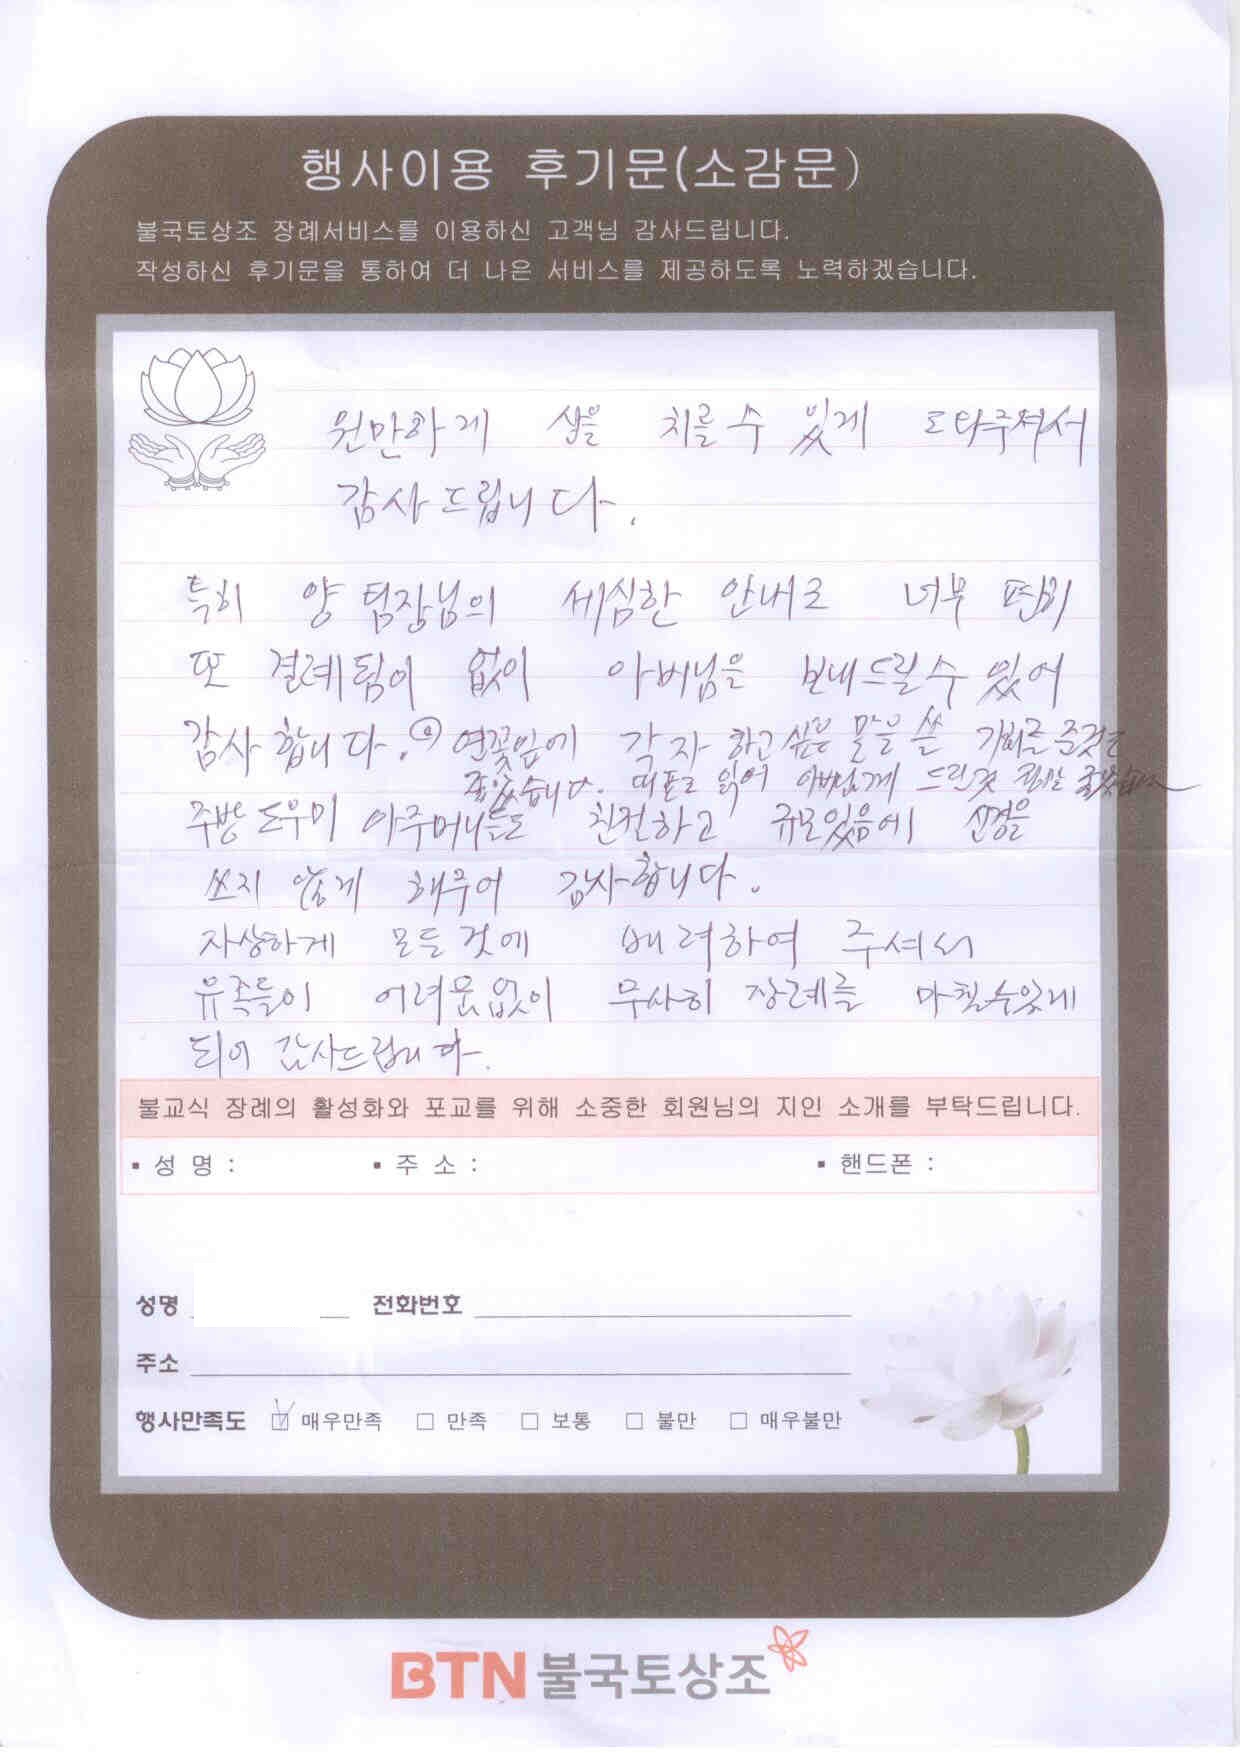 행사이용 후기문(소감문)
불국토상조 장례서비스를 이용하신 고객님 감사드립니다.
작성하신 후기문을 통하여 더 나은 서비스를 제공하도록 노력하겠습니다.
원만하게 상을 치를 수 있게 도와주셔서
감사드립니다.
특히 양 팀장님의 세심한 안내로 너무 편히
또 결례됨이 없이 아버님을 보내드릴 수 있어
감사합니다. 연꽃잎에 각자 하고 싶은 말을 쓸 기회를 준것은
좋았습니다. 대표로 읽어 아버님께 드린것 정말 좋았습니다
주방 도우미 아주머니들도 친절하고 규모있음에 신경을
쓰지 않게 해주어 감사합니다.
자상하게 모든것에 배려하여 주셔서
유족들이 어려움없이 무사히 장례를 마칠수있게
되어 감사드립니다.
불교식 장례의 활성화와 포교를 위해 소중한 회원님의 지인 소개를 부탁드립니다.
▪ 성 명 : ▪ 주 소 : ▪ 핸드폰 :
성명 전화번호
주소
행사만족도 ☑ 매우만족 □ 만족 □ 보통 □ 불만 □ 매우불만
BTN 불국토상조